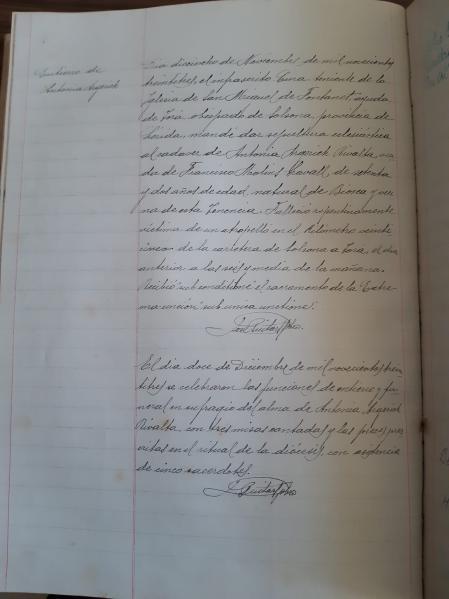 Entierro de
Antonia
Dia dieciocho de Noviembre, de mil novecientos
treintatres, el infrascrito Cura teniente de la
Iglesia de San Miguel de Fontanet, ayuda
de Torá, obispado de Solsona, provincia de
Lérida, mandé dar sepultura eclesiástica
al cadaver de Antonia Rivalta, viu
da de Francisco Molins de setenta
y dos años de edad, natural de Biosca y veci
na de esta Tenencia. Falleció repentinamente
victima de un atropello en el Kilometro veinte
cinco de la carretera de Solsona a Torá, el dia
anterior a las seis y media de la mañana.
Recibió "sub conditione" el sacramento de la Extre
maunción "sub unica unctione".
El dia doce de Diciembre de mil novecientos trein
titres se celebraron las funciones de entierro y fu
neral en sufragio del alma de Antonia
Rivalta, con tres misas cantadas y las preces pres
critas en el ritual de la diócesis, con asistencia
de cinco sacerdotes.